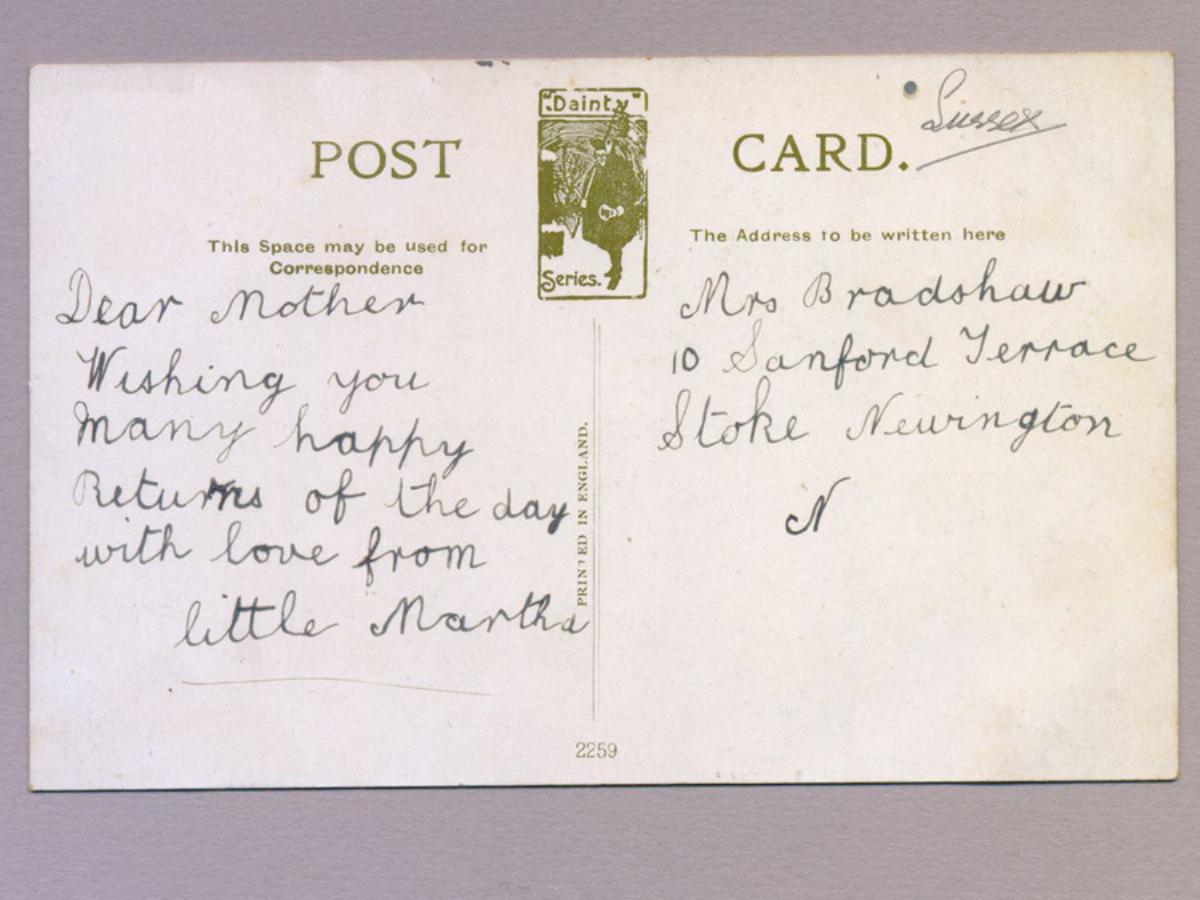 "Dainty"
Series.
POST CARD.
Sussex
This Space may be used for
Correspondence
The Address to be written here
Dear Mother
Wishing you
Many happy
Returns of the day
with love from
little Martha
PRINTED IN ENGLAND.
Mrs Bradshaw
10 Sanford Terrace
Stoke Newington
N
2259